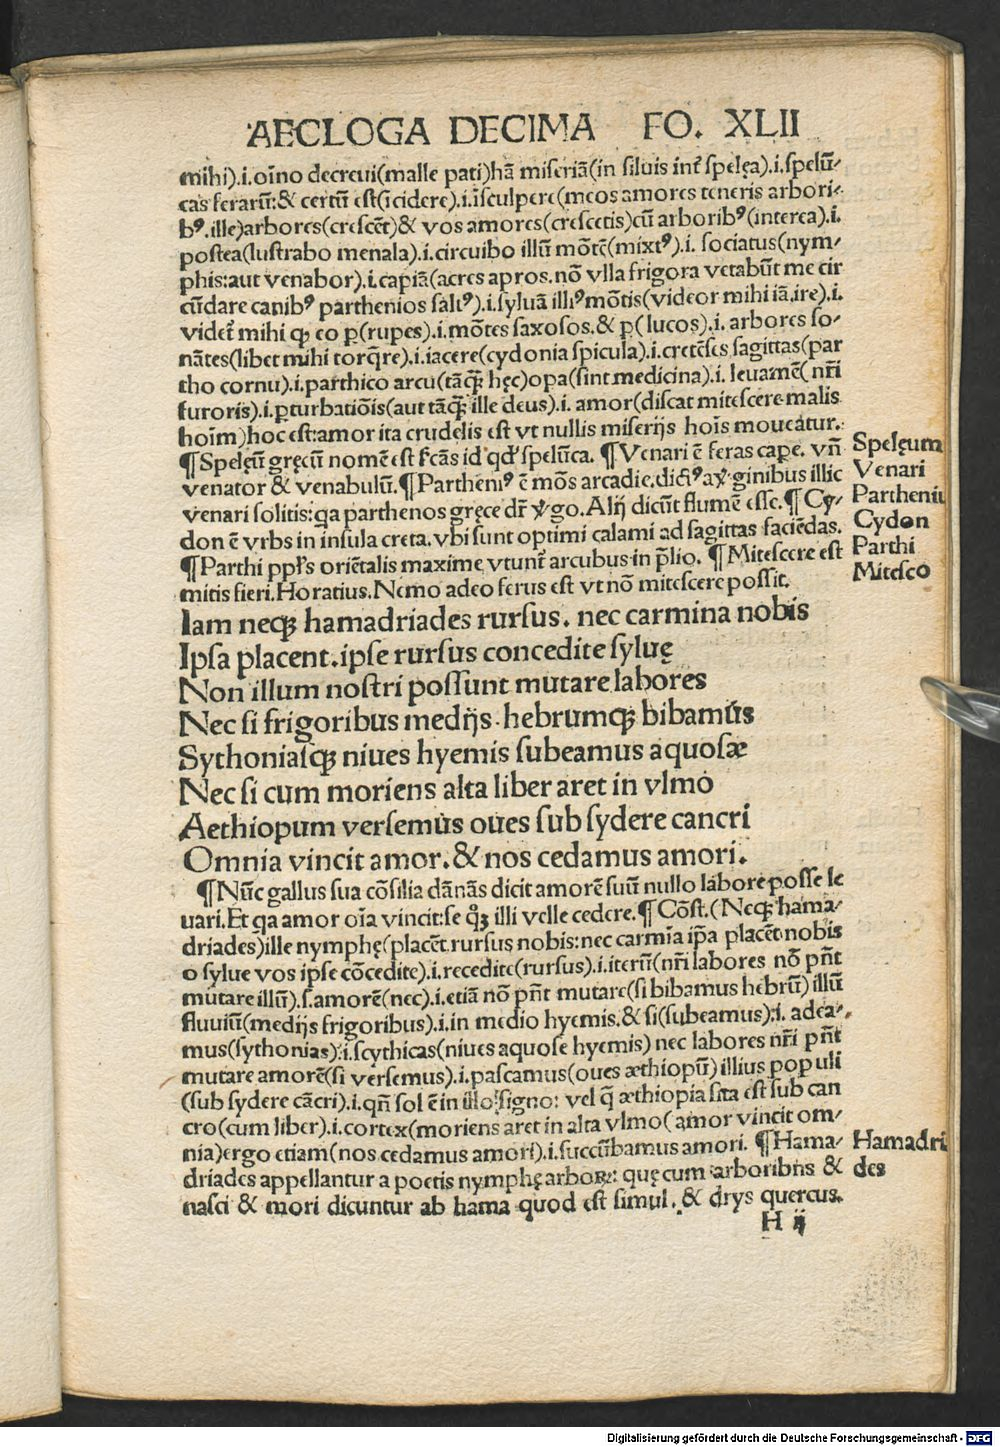 AECLOGA DECIMA FO. XLII
mihi).i.oīno decreui(malle pati)hā miseriā(in siluis int̄ spelęa).i.spelū-
cas ferarū:& certū est(īcidere).i.īsculpere(meos amores teneris arbori-
bꝰ.ille)arbores(crescēt)& vos amores(crescetis)cū arboribꝰ(interea).i.
postea(lustrabo menala).i.circuibo illū mōtē(mixtꝰ).i. sociatus(nym-
phis:aut venabor).i.capiā(acres apros.nō vlla frigora vetabūt me cir
cūdare canibꝰ parthenios saltꝰ).i.syluā illiꝰ mōtis(videor mihi iā.ire).i.
videt̄ mihi ꝙ eo ꝑ(rupes).i.mōtes saxosos.& ꝑ(lucos).i. arbores so-
nātes(libet mihi torq̄re).i.iacere(cydonia spicula).i.cretēses sagittas(par
tho cornu).i.parthico arcu(tāꝙ̄ hęc)opa(sint medicina).i. leuamē(nr̄i
furoris).i.ꝑturbatiōis(aut tāꝙ̄ ille deus).i. amor(discat mitescere malis
hoīm)hoc est:amor ita crudelis est vt nullis miserijs hoīs moueatur.
¶Spelęū gręcū nomē est s̄icās id qd' spelūca. ¶Venari ē feras cape. vn̄
venator & venabulū.¶Partheniꝰ ē mōs arcadie.dictꝰ a v̄ginibus illic
venari solitis:qa parthenos gręce dr̄ v̄go. Alij dicūt flumē esse.¶Cy-
don ē vrbs in insula creta.vbi sunt optimi calami ad sagittas faciēdas.
¶Parthi pp̄ls oriētalis maxime vtunt̄ arcubus in p̄lio. ¶Mitescere est
mitis fieri.Horatius.Nemo adeo ferus est vt nō mitescere possit.
Spelęum
Venari
Partheniꝰ
Cydon
Parthi
Mitesco
Iam neqꝫ hamadriades rursus. nec carmina nobis
Ipsa placent.ipse rursus concedite syluę
Non illum nostri possunt mutare labores
Nec si frigoribus medijs hebrumqꝫ bibamus
Sythoniasqꝫ niues hyemis subeamus aquosæ
Nec si cum moriens alta liber aret in vlmo
Aethiopum versemus oues sub sydere cancri
Omnia vincit amor.& nos cedamus amori.
¶Nūc gallus sua cōsilia dānās dicit amorē suū nullo labore posse le
uari.Et qa amor oīa vincit:se qꝫ illi velle cedere.¶Cōst.(Neqꝫ hama-
driades)ille nymphę(placēt.rursus nobis:nec carmīa ip̄a placēt nobis
o sylue vos ipse cōcedite).i.recedite(rursus).i.iterū(nr̄i labores nō pn̄t
mutare illū).s.amorē(nec).i.etiā nō pn̄t mutare(si bibamus hebrū)illū
fluuiū(medijs frigoribus).i.in medio hyemis.& si(subeamus).i. adea-
mus(sythonias).i.scythicas(niues aquose hyemis)nec labores nr̄i pn̄t
mutare amorē(si versemus).i.pascamus(oues æthiopū)illius populi
(sub sydere cācri).i.qn̄ sol ē in illo signo: vel q̄ æthiopia sita est sub can
cro(cum liber).i.cortex(moriens aret in alta vlmo(amor vincit om-
nia)ergo etiam(nos cedamus amori).i.succūbamus amori. ¶Hama-
driades appellantur a poetis nymphę arboꝝ: quę cum arboribus &
nasci & mori dicuntur ab hama quod est simul.& drys quercus.
Hamadri
des
H ij
Digitalisierung gefördert durch die Deutsche Forschungsgemeinschaft - DFG